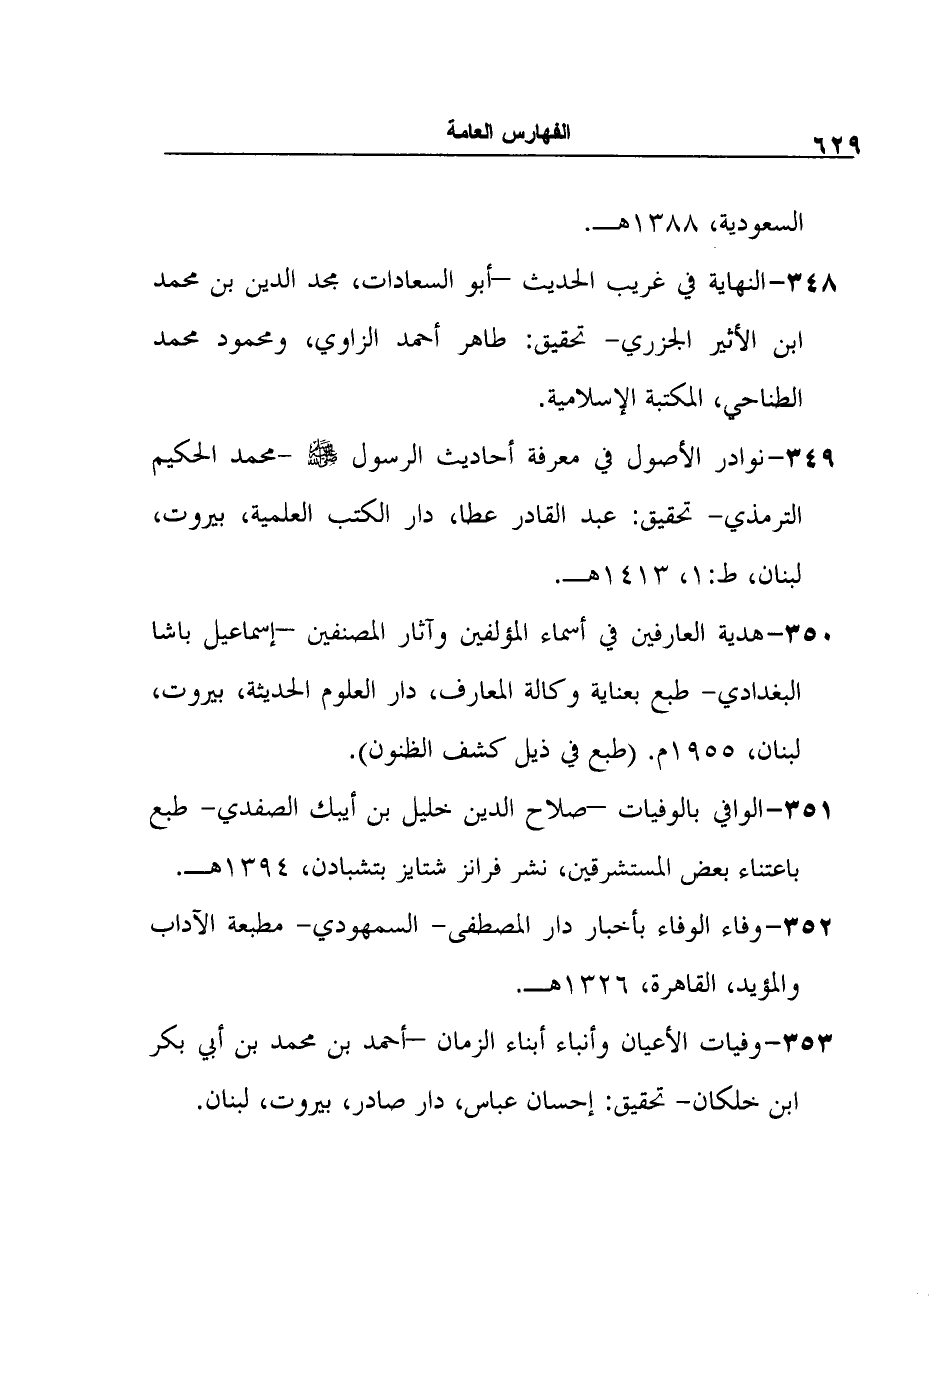 الفهارس العامة
٦٢٩
السعودية، ١٣٨٨هـ.
٣٤٨-النهاية في غريب الحديث -أبو السعادات، مجد الدين بن محمد
ابن الأثير الجزري- تحقيق: طاهر أحمد الزاوي، ومحمود محمد
الطناحي، المكتبة الإسلامية.
٣٤٩-نوادر الأصول في معرفة أحاديث الرسول ﷺ -محمد الحكيم
الترمذي- تحقيق: عبد القادر عطا، دار الكتب العلمية، بيروت،
لبنان، ط:١، ١٤١٣هـ.
٣٥٠-هدية العارفين في أسماء المؤلفين وآثار المصنفين -إسماعيل باشا
البغدادي- طبع بعناية وكالة المعارف، دار العلوم الحديثة، بيروت،
لبنان، ١٩٥٥م. (طبع في ذيل كشف الظنون).
٣٥١-الوافي بالوفيات -صلاح الدين خليل بن أيبك الصفدي- طبع
باعتناء بعض المستشرقين، نشر فرانز شتايز بتشبادن، ١٣٩٤هـ.
٣٥٢-وفاء الوفاء بأخبار دار المصطفى- السمهودي- مطبعة الآداب
والمؤيد، القاهرة، ١٣٢٦هـ.
٣٥٣-وفيات الأعيان وأنباء أبناء الزمان -أحمد بن محمد بن أبي بكر
ابن خلكان- تحقيق: إحسان عباس، دار صادر، بيروت، لبنان.